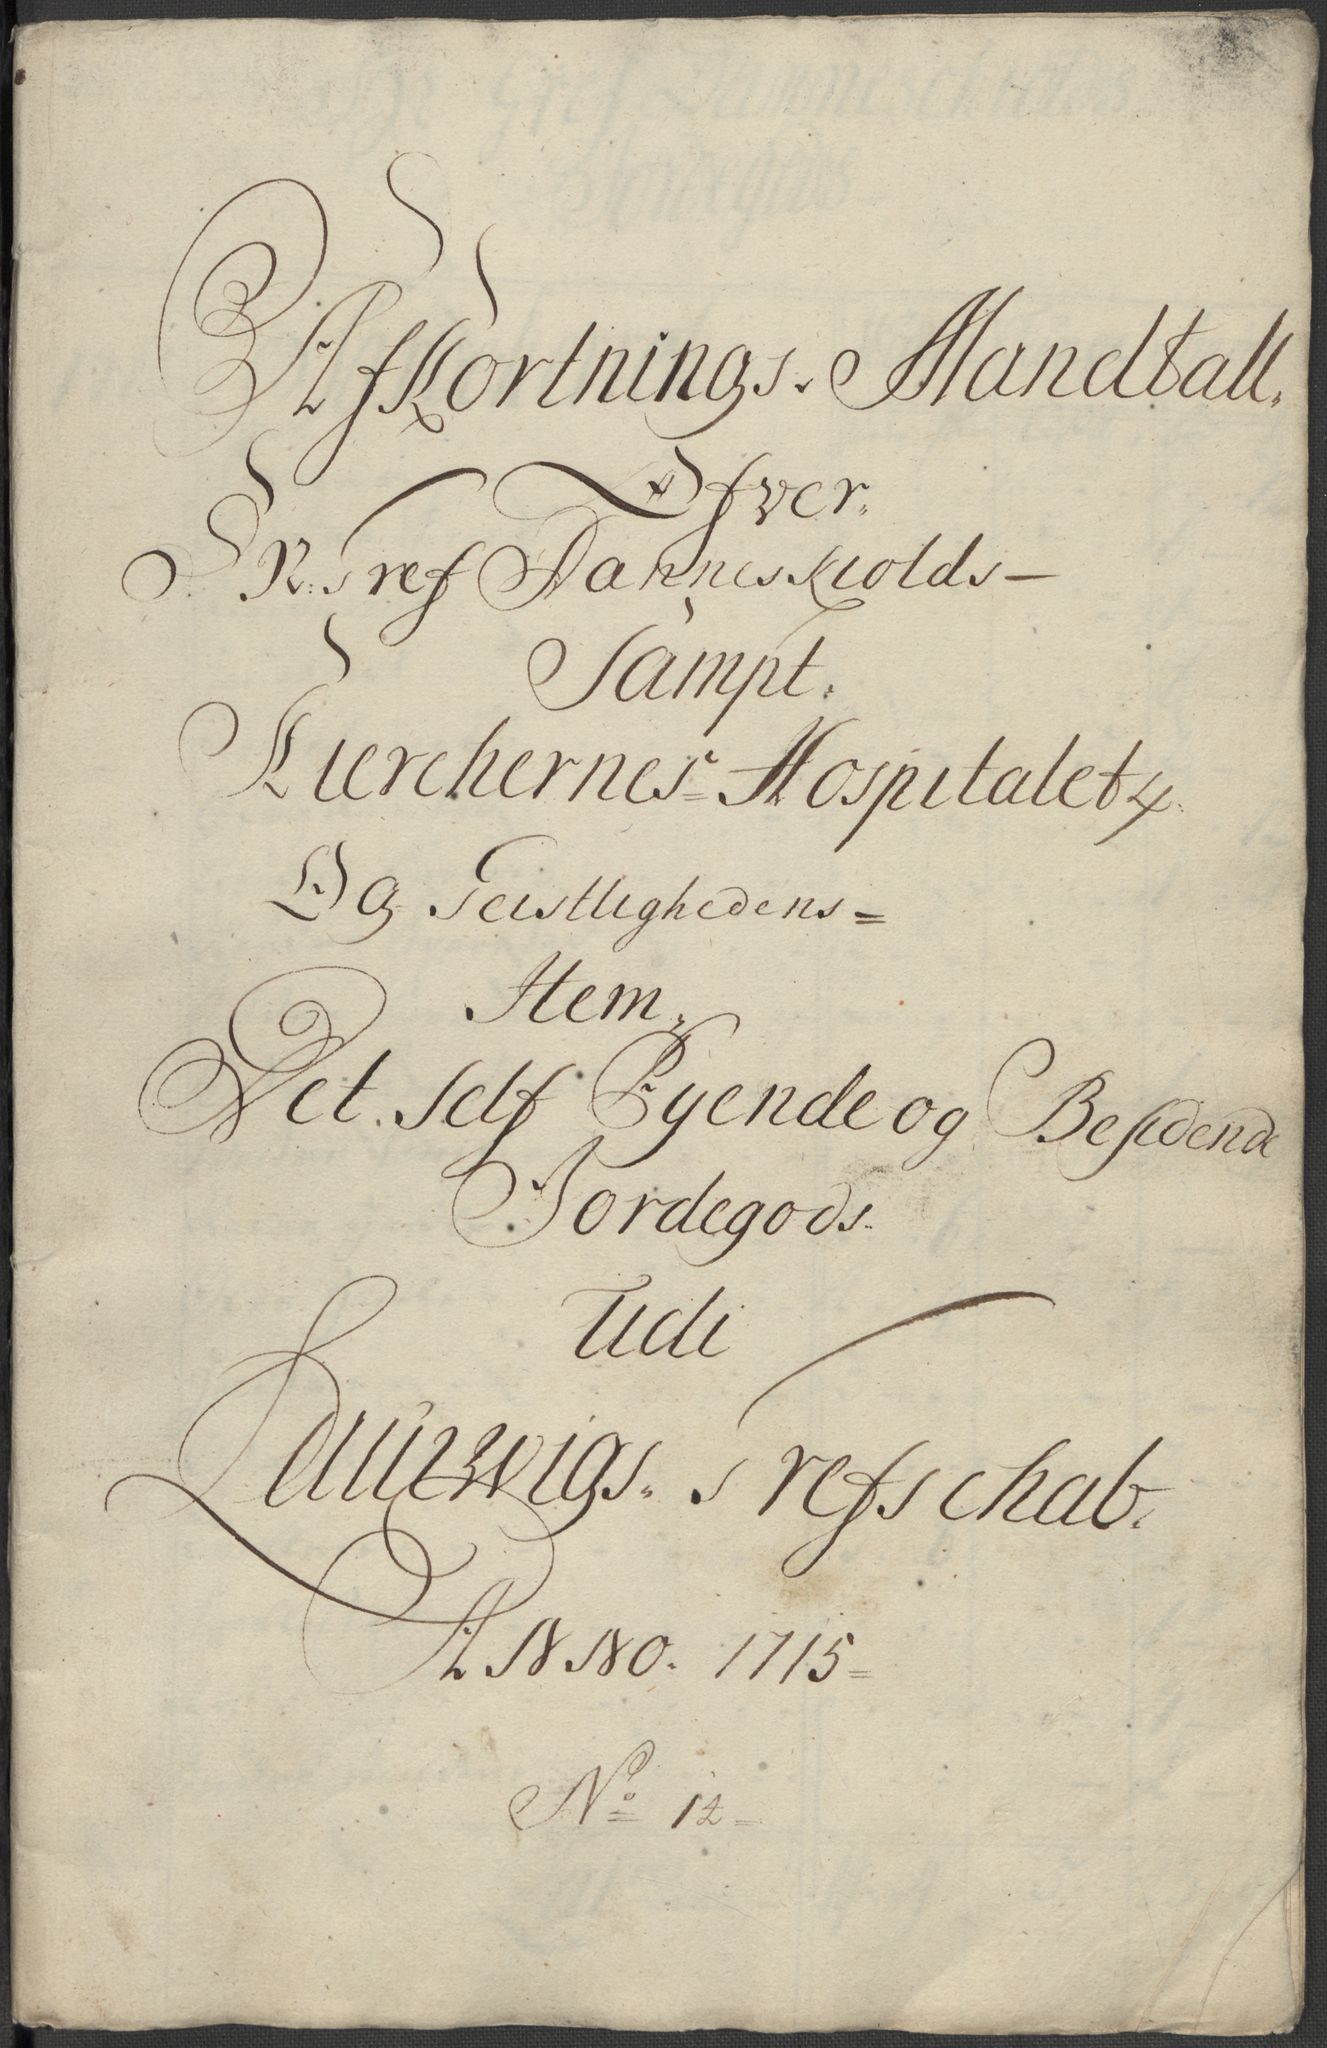 Afkortnings. Mandtall.
Ofver.
Hr. Gref Danneskiolds-
Sampt.
Kierchernes- Hospitalets
Og Geistlighedens=
Item,
Det. Self Eyende og Besidende
Jordegods.
Udi
Laurwigs. Grefschab.
ANNO. 1715=
No 12=